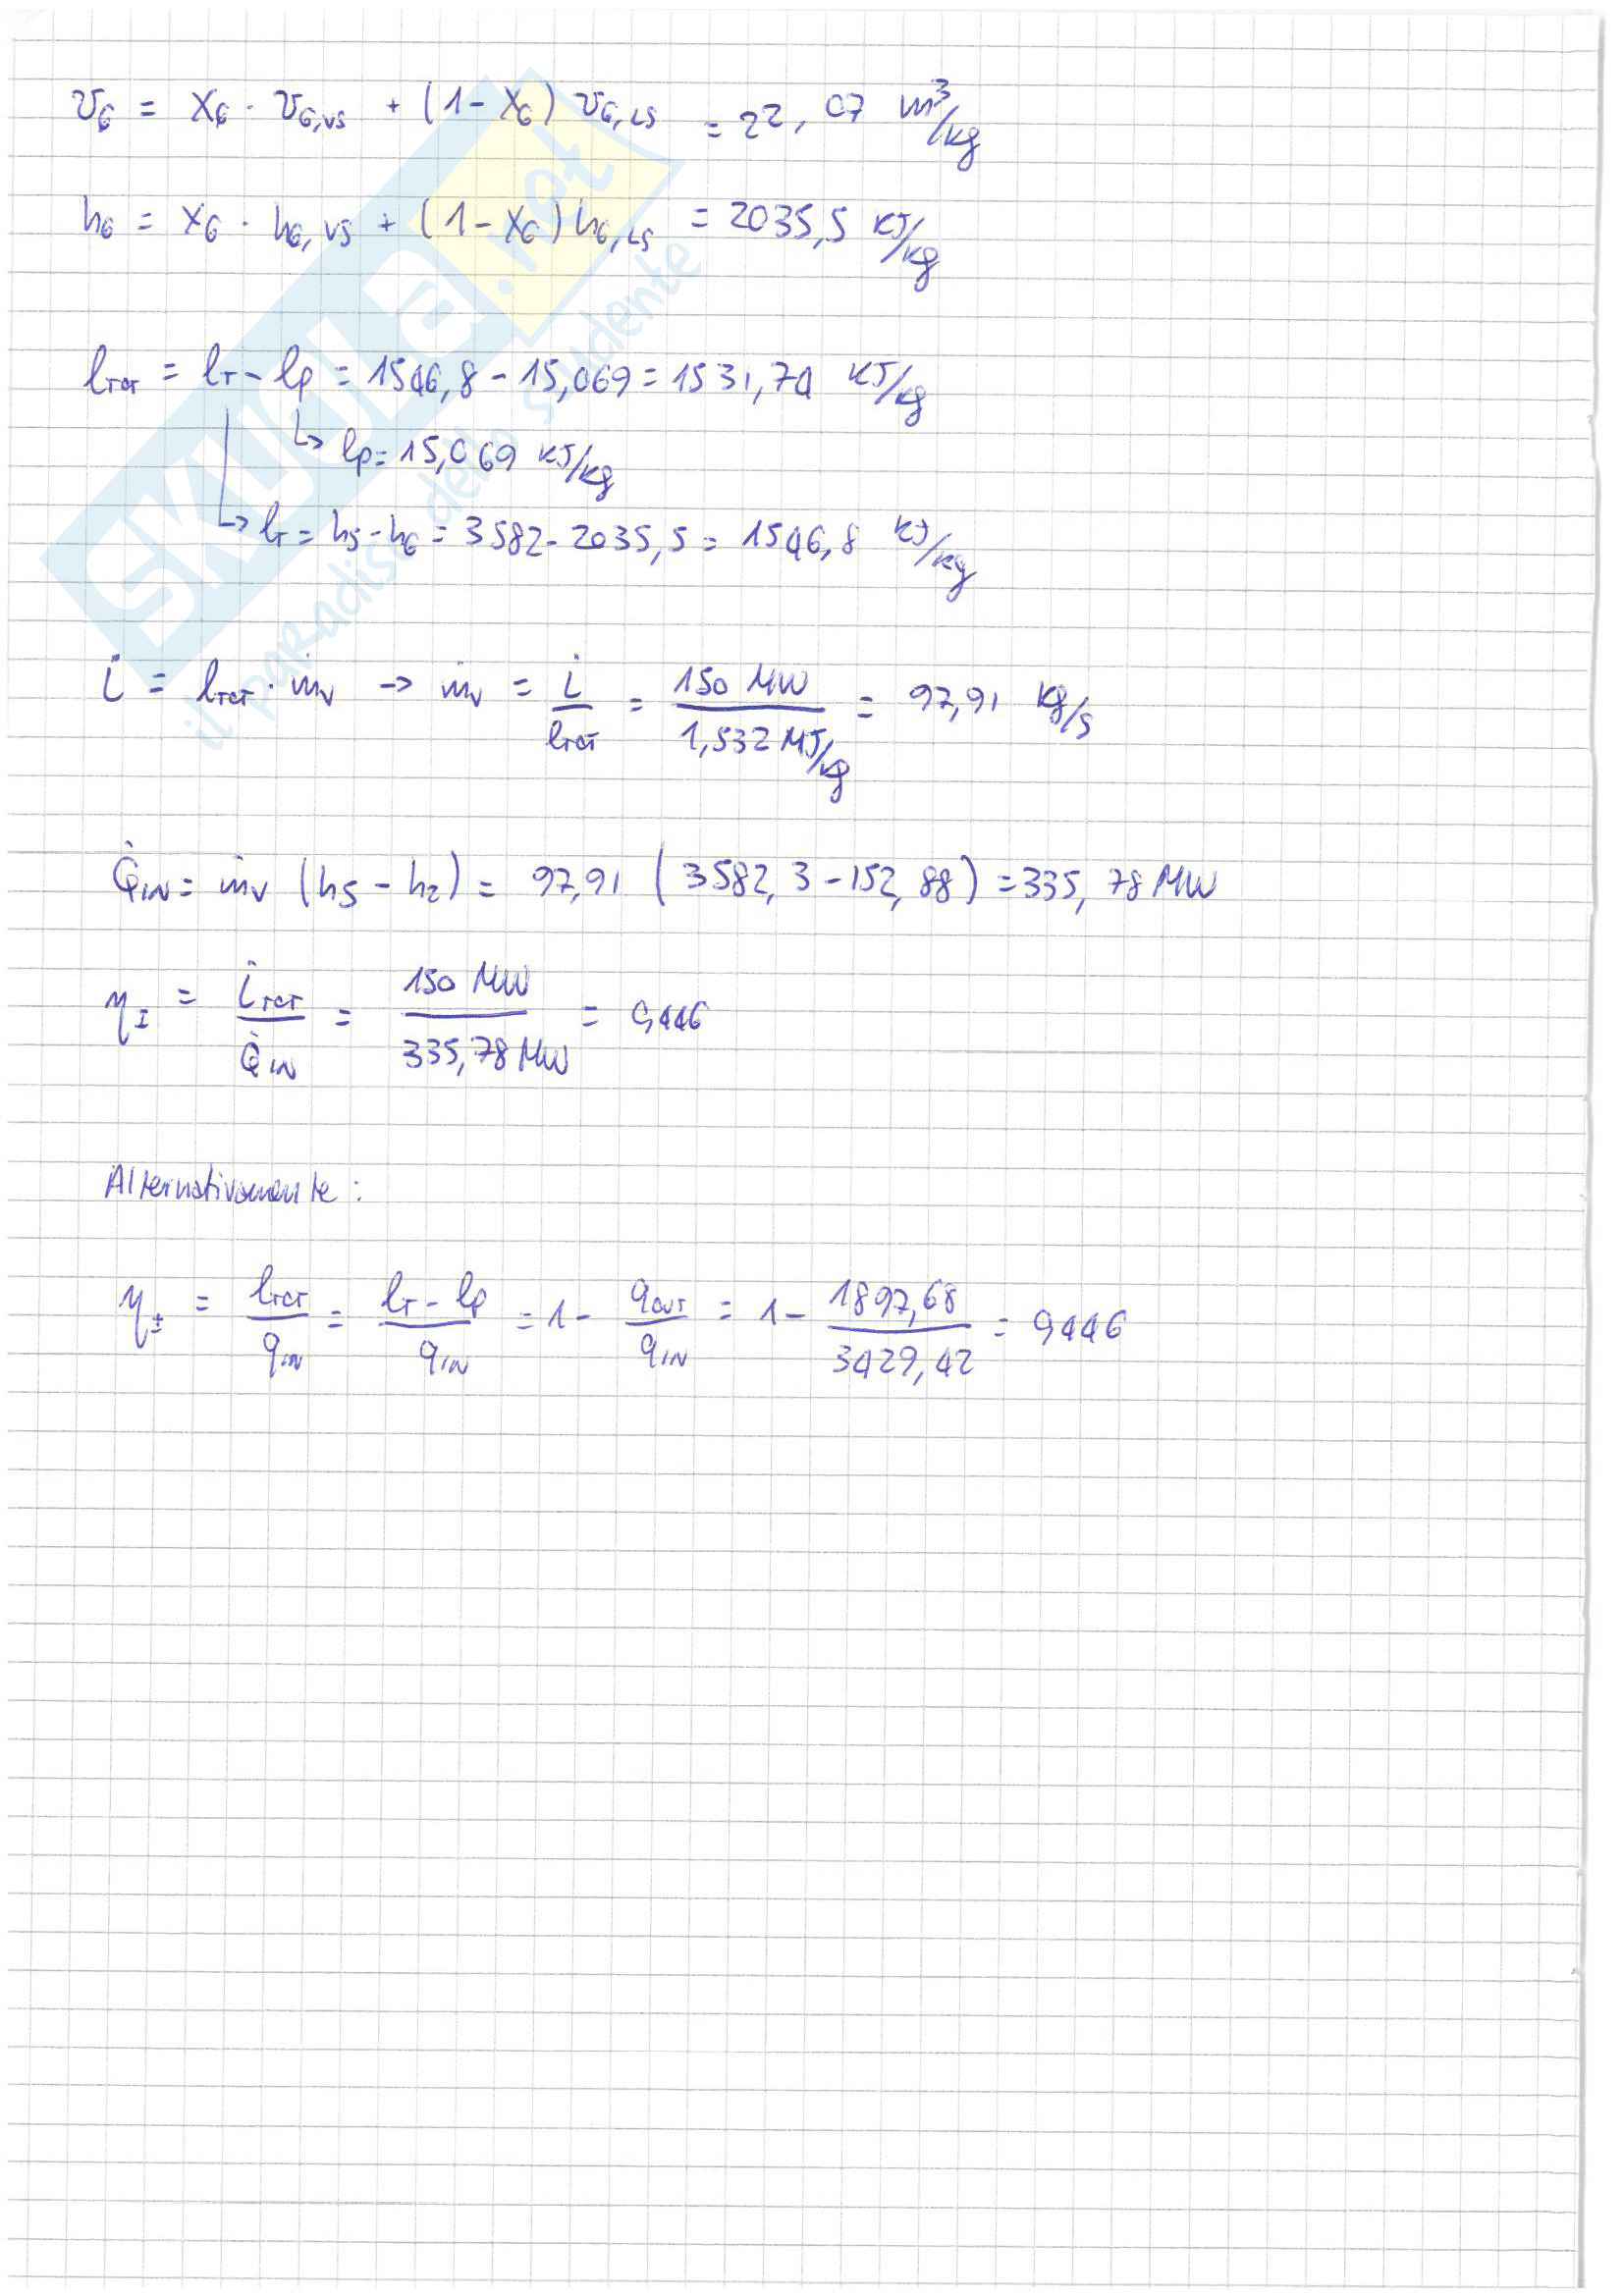 v6 = x6 · v6,vs + (1 - x6) v6,Ls = 22,07 m³/kg
h6 = x6 · h6,vs + (1 - x6) h6,Ls = 2035,5 kJ/kg
lTOT = lT - lP = 1546,8 - 15,069 = 1531,74 kJ/kg
↳ lP = 15,069 kJ/kg
↳ lT = h5 - h6 = 3582 - 2035,5 = 1546,8 kJ/kg
L̇ = lTOT · ṁv → ṁv = L̇/lTOT = 150 MW / 1,532 MJ/kg = 97,91 kg/s
Q̇IN = ṁv (h5 - h2) = 97,91 (3582,3 - 152,88) = 335,78 MW
ηI = L̇TOT/Q̇IN = 150 MW / 335,78 MW = 0,446
Alternativamente:
ηI = lTOT/qIN = (lT - lP)/qIN = 1 - qOUT/qIN = 1 - 1897,68/3429,42 = 0,446
SKUOLA.net
il paradiso dello studente